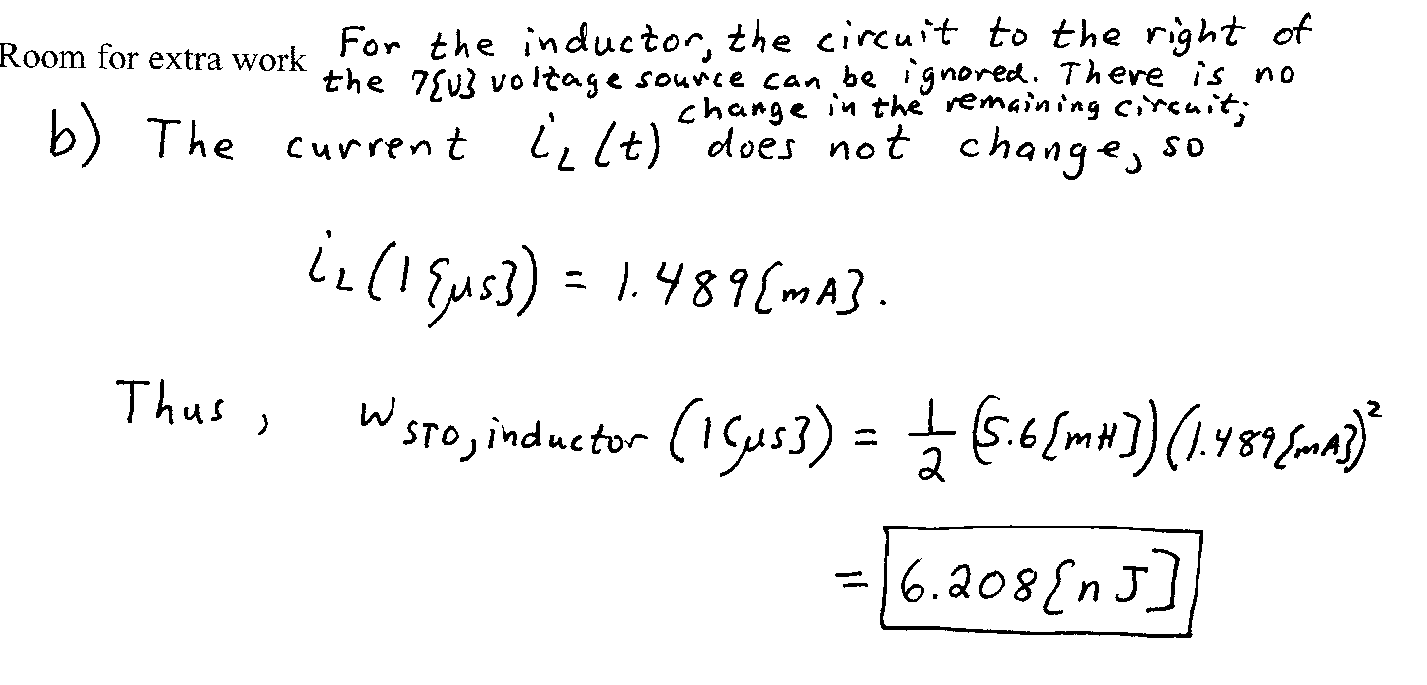 Room for extra work For the inductor, the circuit to the right of
the 7[V] voltage source can be ignored. There is no
change in the remaining circuit;
b) The current i_L(t) does not change, so
i_L(1[μs]) = 1.489[mA].
Thus, w_STO,inductor (1[μs]) = 1/2 (5.6[mH])(1.489[mA])²
= 6.208[nJ]